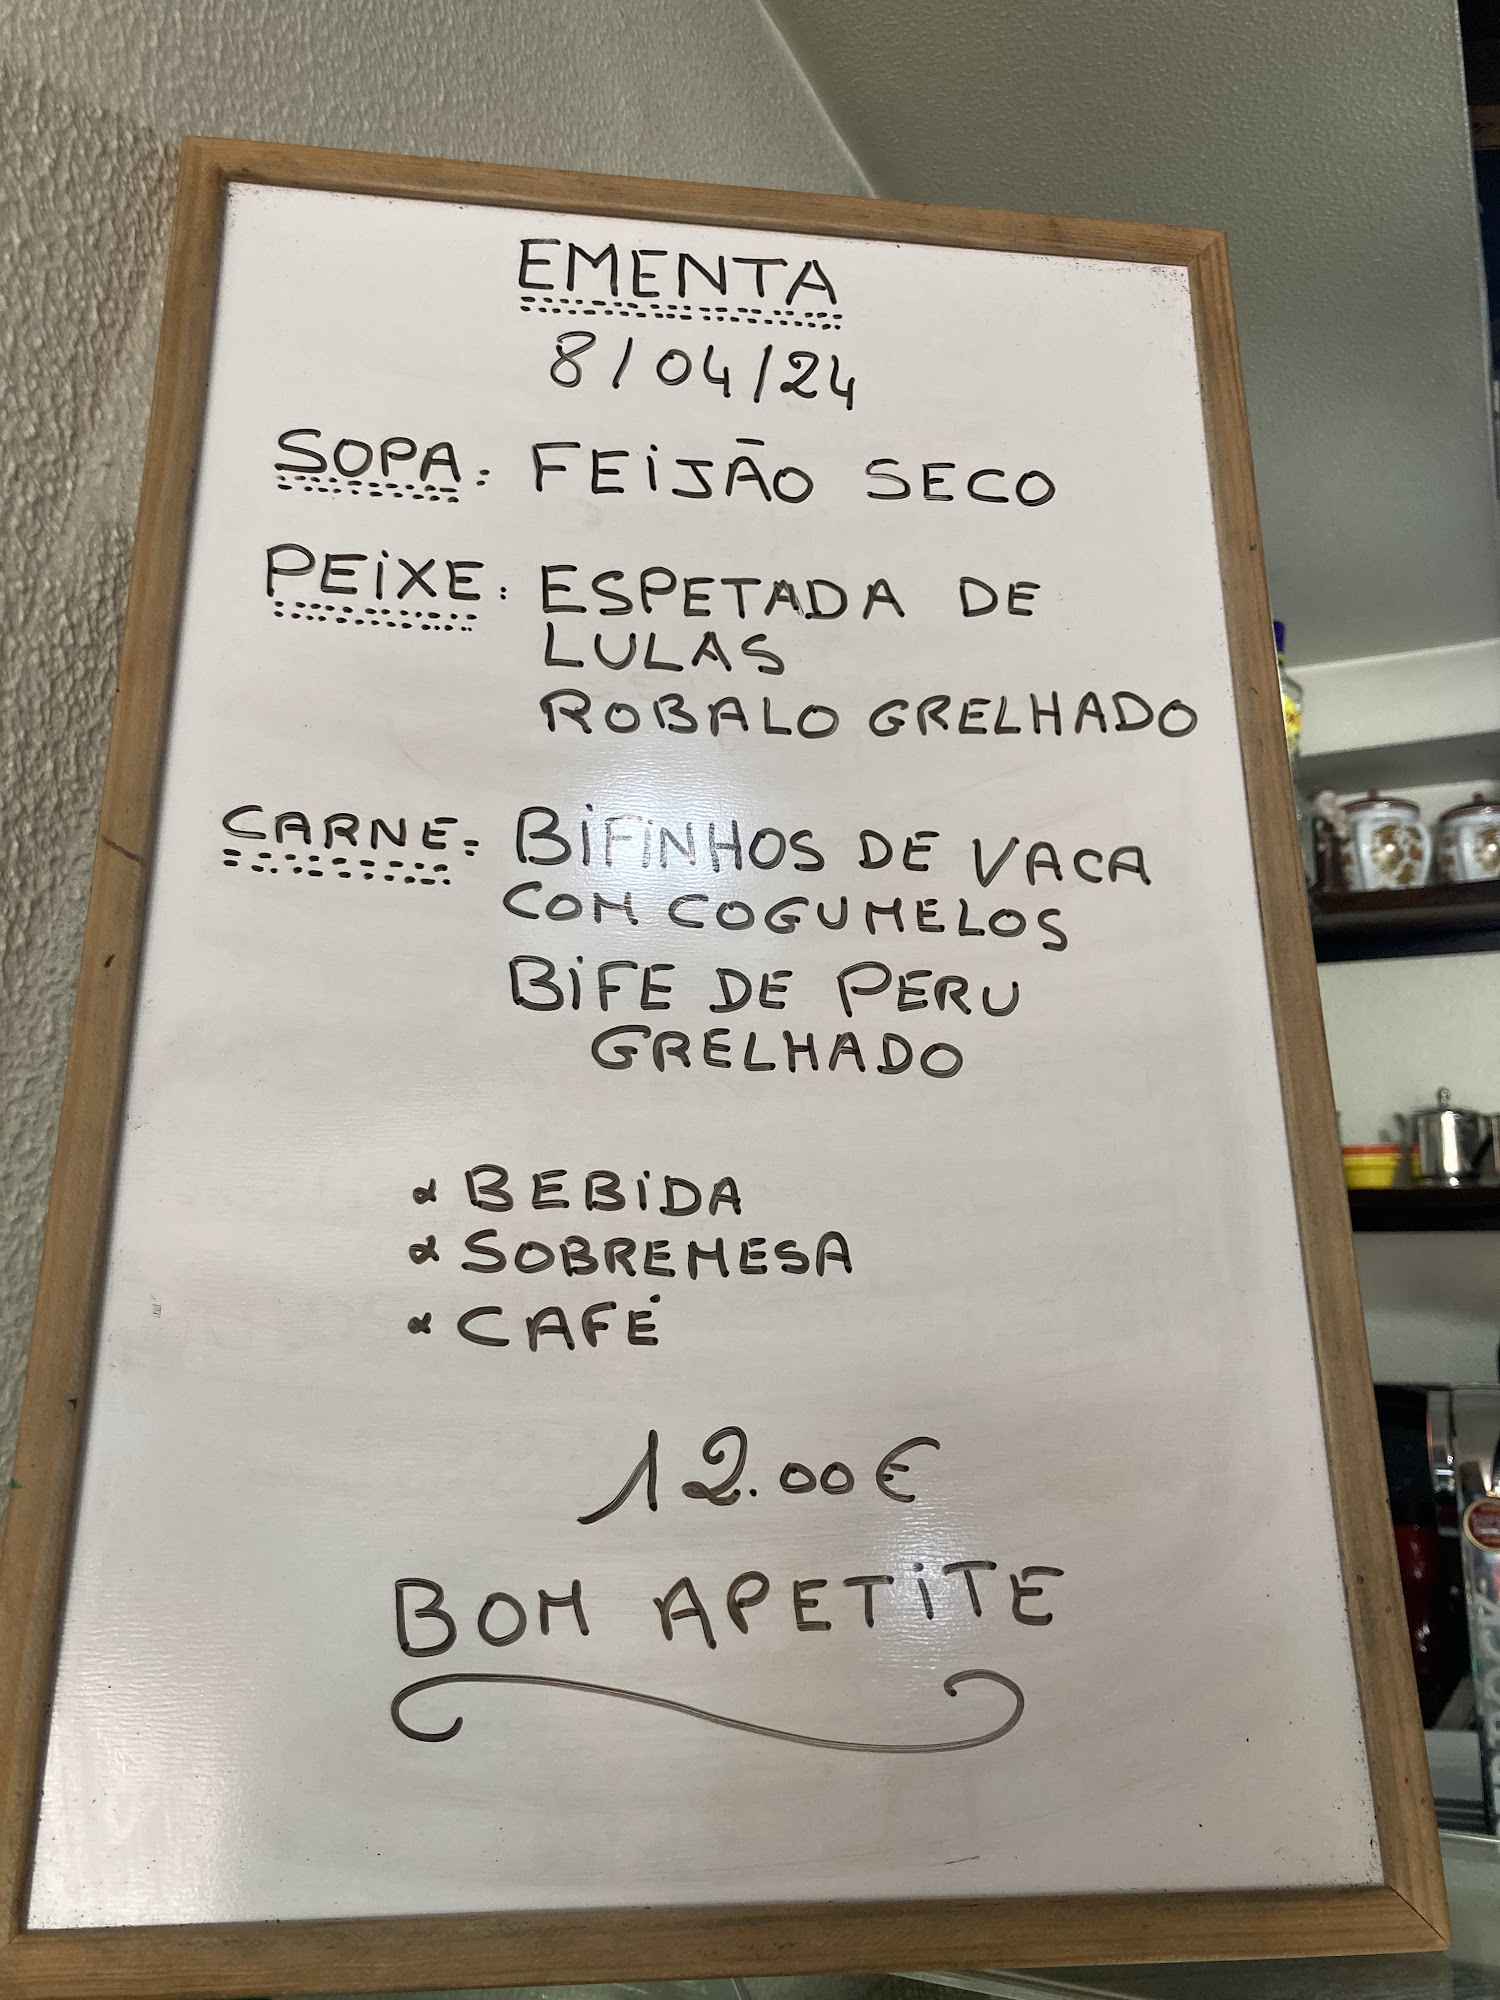 EMENTA
8/04/24
SOPA: FEIJÃO SECO
PEIXE: ESPETADA DE
LULAS
ROBALO GRELHADO
CARNE: BIFINHOS DE VACA
COM COGUMELOS
BIFE DE PERU
GRELHADO
BEBIDA
SOBREMESA
CAFÉ
12.00€
BOM APETITE